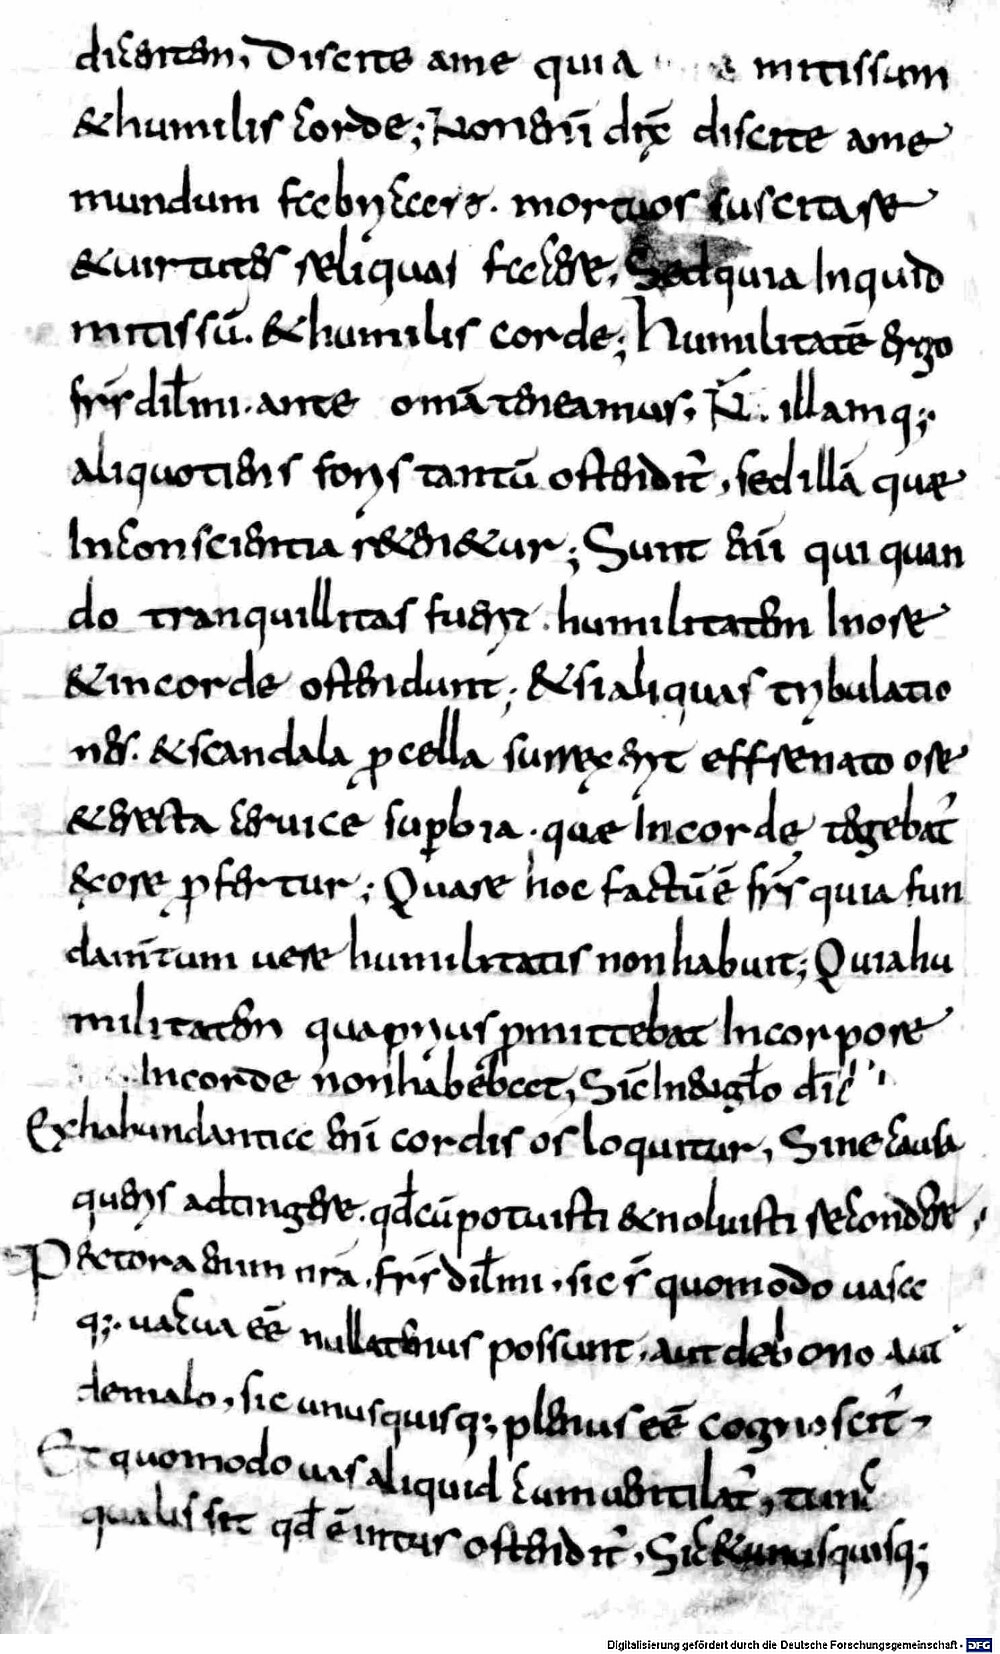 dicentem, Discite ame quia mitissum
& humilis corde; Non enī dix̄ discite ame
mundum fabricare. mortuos suscitare
& uirtutes reliquas facere, Sed quia Inquid
mitissū. & humilis corde; Humilitatē ergo
frīs dil̄mi. ante om̄a teneamus, N̄. illamq;
aliquotiens foris tantū ostendit̄, sed illā quae
Inconscientia retenetur; Sunt enī qui quan
do tranquillitas fuerit. humilitatem Inore
& incorde ostendunt, & si aliquas tribulatio
nes. & scandala p̄cella surrexerit effrenato ore
& erecta ceruice sup̄bia. quae Incorde tegebat̄
& ore p̄fertur; Quare hoc factū ē frīs quia fun
dam̄tum uere humilitatis non habuit; Quia hu
militatem qua prius p̄mittebat Incorpore
Incorde non habebat, Sic̄ In euāgl̄o dic̄
Exhabundantia enī cordis os loquitur, Sine causa
queris adtingere. qd̄ cū potuisti & noluisti recondere,
Pectora enim nr̄a, frīs dil̄mi, sic s̄ quomodo uasa
q; uacua eē nullatenus possunt, aut de bono aut
demalo, sic unusquisq; plenius eē cognoscit̄,
Et quomodo uas aliquid cum uentilat̄, tunc
qualis sit qd̄ ē intus ostendit̄, Sic & unusquisq;
Digitalisierung gefördert durch die Deutsche Forschungsgemeinschaft - DFG